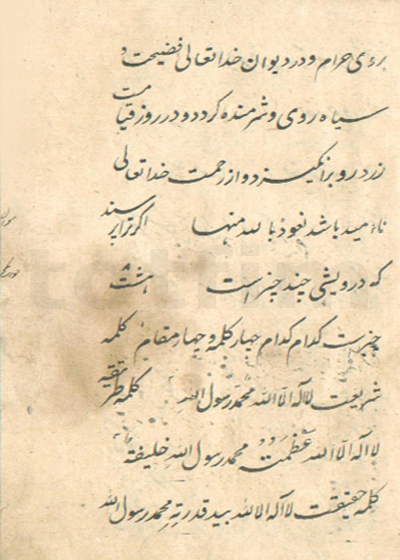 برؤی حرام و در دیوان خدا تعالی فضیحت و
سیاه روی و شرمنده کردد و در روز قیامت
زرد رو برانکیزد و از رحمت خدا تعالی
نا امید باشد نعوذ بالله منها اکر ترا پرسند
که درویشی چند چیز است هشت
چیزست کدام کدام چهار کلمه و چهار مقام کلمه
شریعت لا اله الا الله محمد رسول الله کلمه طریقت
لا اله الا الله عظمت محمد رسول الله خلیفته
کلمه حقیقت لا اله الا الله بید قدرته محمد رسول الله